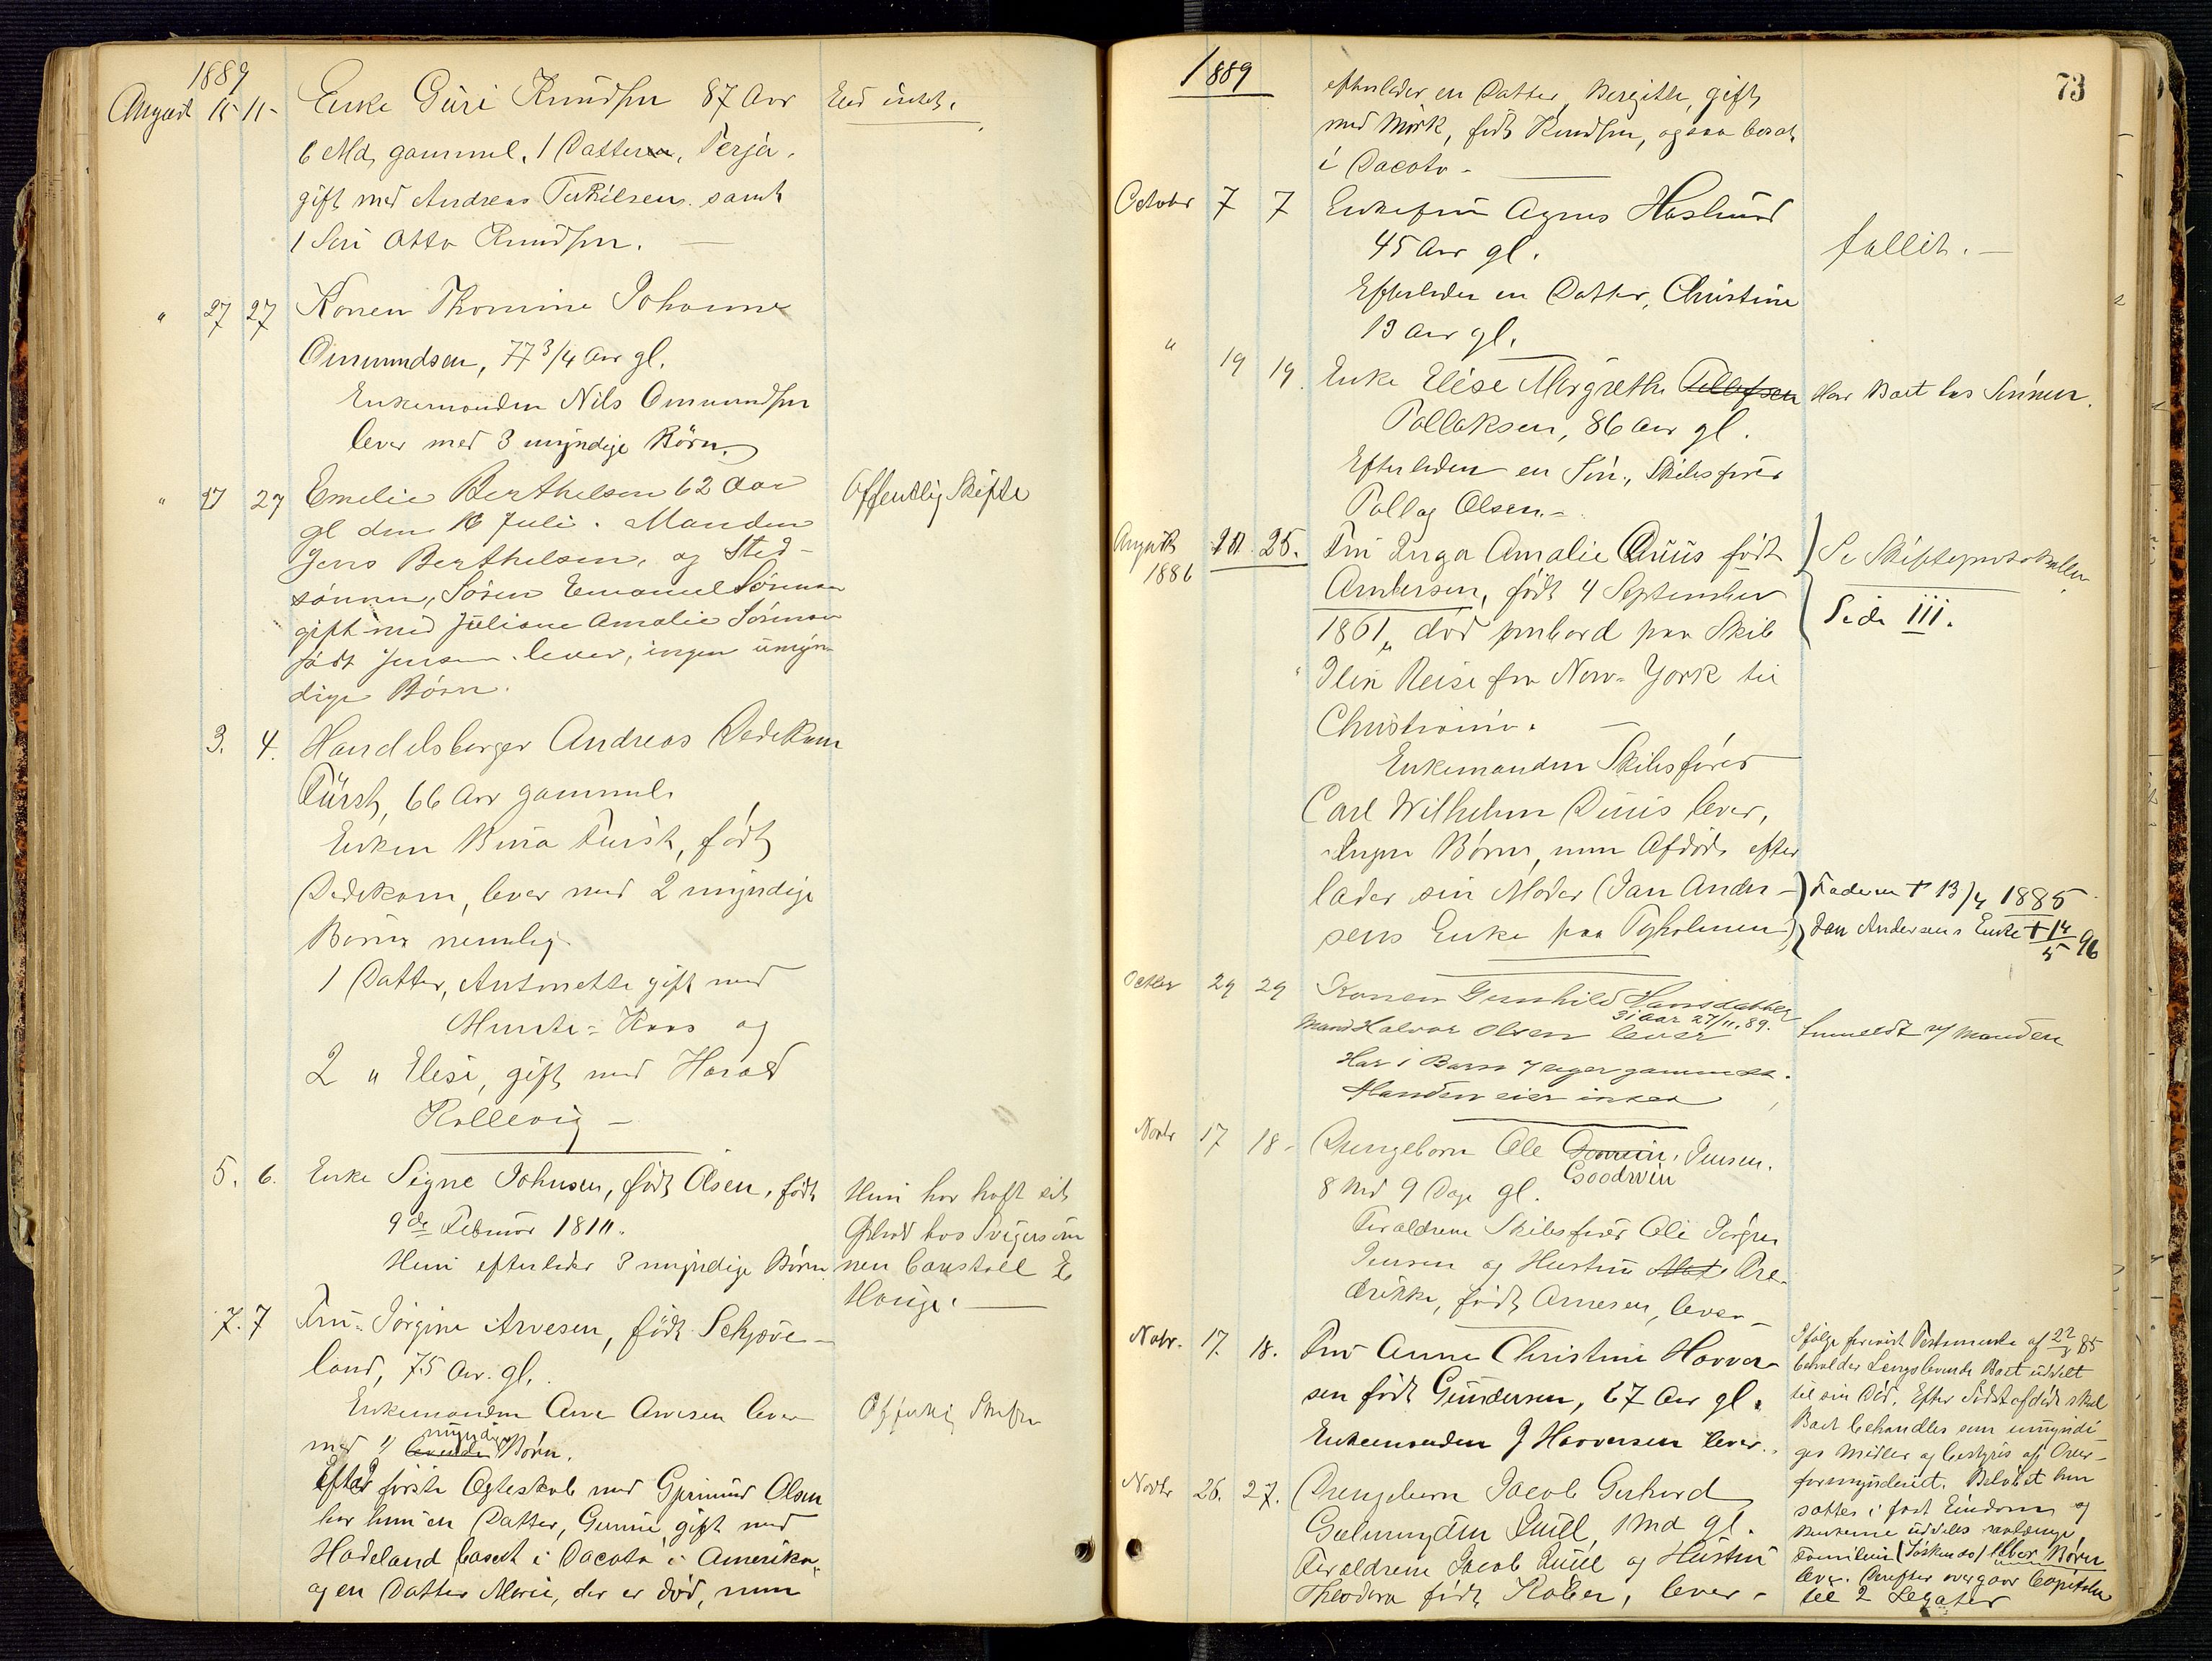 1889
August 15 11- Enke Guri Knudsen 87 Aar
6 Md. gammel. 1 Datter, Terja,
gift med Andreas Terkilsen samt
1 Sön Otto Knudsen. —
Eied intet.
" 27 27 Konen Thomine Johanne
Omundsen, 77 3/4 Aar gl.
Enkemanden Nils Omundsen
lever med 3 myndige Börn.
" 27 27 Emelie Berthelsen 62 Aar
gl den 16 Juli. Manden
Jens Berthelsen, og Sted-
sönnen, Sören Emanuel Sörensen
gift med Juliane Amalie Sörensen
födt Jensen lever, ingen umyn-
dige Börn.
Offentlig Skifte
3. 4. Handelsborger Andreas Dedekam
Fürst, 66 Aar gammel.
Enken Bina Fürst, födt
Dedekam, lever med 2 myndige
Börn nemlig
1 Datter, Antonette gift med
Munte-Kaas og
2 " Elise, gift med Harald
Kallevig —
5. 6. Enke Signe Johnsen, födt Olsen, födt
9de Februar 1811.
Hun efterlader 3 myndige Börn.
Hun har haft sit
Ophold hos Svigersön
nen Constall E.
Hauge. —
7. 7 Fru Jörgine Arvesen, födt Schjöve-
land, 75 Aar gl.
Enkemanden Arve Arvesen lever
med levende myndige Börn.
Offentlig Skifte
Efter förste Ægteskab med Gjermund Olsen
har hun en Datter, Gunnie gift med
Hadeland bosat i Dacota i Amerika,
og en Datter Marie, der er död, men
1889
73
efterlader en Datter Bergitte, gift
med Mörk, födt Knudsen, ogsaa bosat
i Dacota —
October 7 7 Enkefru Agnes Haslund
45 Aar gl.
Efterlader en Datter, Christine
13 Aar gl.
fallit. —
" 19 19. Enke Elise Margrethe Tellefsen
Tallaksen, 86 Aar gl.
Efterlader en Sön, Skibsförer
Tallag Olsen. —
Har Boet hos Sönnen.
August 1886 20. 25. Fru Inga Amalie Duus födt
Andersen, födt 4 September
1861, död ombord paa Skib
Ilin Reise fra New-York til
Christiania. —
Enkemanden Skibsförer
Carl Wilhelm Duus lever,
Ingen Börn, men Afdöde efter
lader sin Moder (Jan Ander-
sens Enke paa Tyholmen)
Se Skifteprotokollen
Side III.
Faderen † 13/4 1885
Jan Andersens Enke † 14/5 96
Octbr 29 29 Konen Gunhild Hansdatter
31 aar 27/11.89.
Mand Halvor Olsen lever
Har 1 Barn 7 uger gammelt.
Manden eier intet
Anmeldt af Manden
Novbr 17 18- Drengebarn Ole Goodwin Jensen.
8 Md 9 Dage gl.
Foraldrene Skibsförer Ole Jörgen
Jensen og Hustru Fre-
drikke, födt Arnesen, lever —
Novbr. 17. 18. Fru Anne Christine Haaver-
sen födt Gundersen, 67 Aar gl.
Enkemanden J Haaversen lever.
Ifölge forevist Testamente af 22/3 85
beholder Længstlevende Boet udeelt
til sin Död. Efter Sidstafdöde skal
Boet behandles som umyndi-
ges Midler og bestyres af Over-
formynderiet. Belöbet hen
sættes i fast Eiendom og
Renterne uddeles saalænge
Familien (Söskende) eller Börn
lever. Derefter overgaar Capitalen
til 2 Legater
Novbr 26. 27. Drengebarn Jacob Gerhard
Juell, 1 Md gl.
Foraldrene Jacob Juell og Hustru
Theodora födt Kaber, lever —